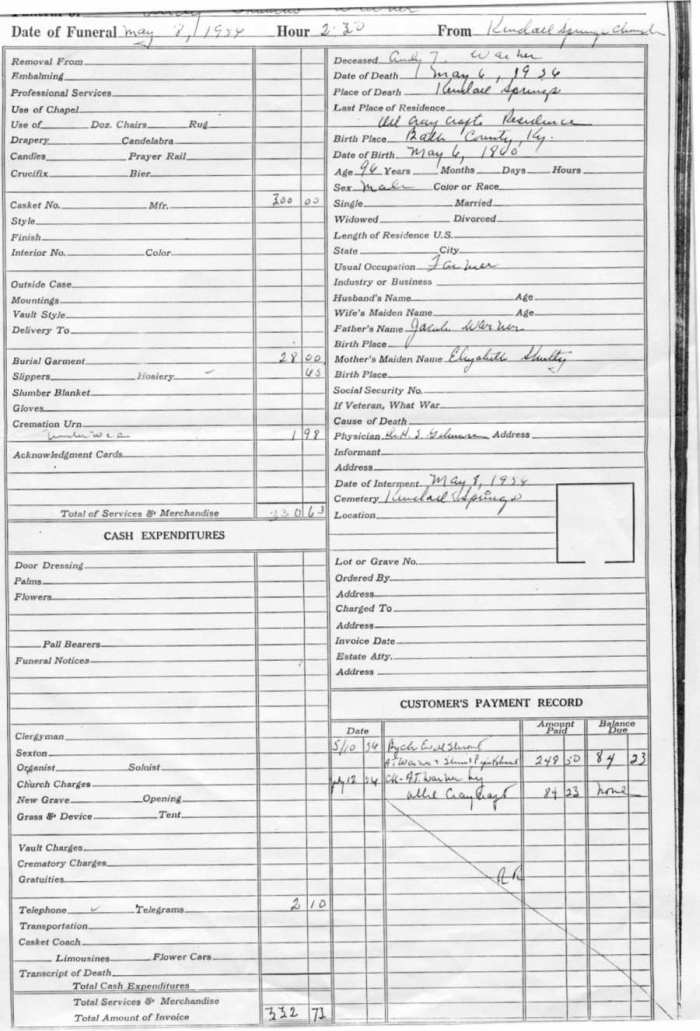 Date of Funeral May 8, 1956 Hour 2:30 From Kendall Springs Church
Removal From
Embalming
Professional Services
Use of Chapel
Use of Doz. Chairs Rug
Drapery Candelabra
Candles Prayer Rail
Crucifix Bier
Casket No. Mfr. 300 00
Style
Finish
Interior No. Color
Outside Case
Mountings
Vault Style
Delivery To
Burial Garment 28 00
Slippers Hosiery 65
Slumber Blanket
Gloves
Cremation Urn
underwear 1 98
Acknowledgment Cards
Total of Services & Merchandise 330 63
CASH EXPENDITURES
Door Dressing
Palms
Flowers
Pall Bearers
Funeral Notices
Clergyman
Sexton
Organist Soloist
Church Charges
New Grave Opening
Grass & Device Tent
Vault Charges
Crematory Charges
Gratuities
Telephone Telegrams 2 10
Transportation
Casket Coach
Limousines Flower Cars
Transcript of Death
Total Cash Expenditures
Total Services & Merchandise
Total Amount of Invoice 332 73
Deceased Andy T. Warner
Date of Death May 6, 1956
Place of Death Kendall Springs
Last Place of Residence
Craycrafts Residence
Birth Place Bath County, Ky.
Date of Birth May 6, 1860
Age 96 Years Months Days Hours
Sex Male Color or Race
Single Married
Widowed Divorced
Length of Residence U.S.
State City
Usual Occupation Farmer
Industry or Business
Husband's Name Age
Wife's Maiden Name Age
Father's Name Jacob Warner
Birth Place
Mother's Maiden Name Elizabeth Shultz
Birth Place
Social Security No.
If Veteran, What War
Cause of Death
Physician Dr. H. S. Address
Informant
Address
Date of Interment May 8, 1956
Cemetery Kendall Springs
Location
Lot or Grave No.
Ordered By
Address
Charged To
Address
Invoice Date
Estate Atty.
Address
CUSTOMER'S PAYMENT RECORD
Date Amount Paid Balance Due
5/10 56 By ck
248 50 84 23
July 12 56 Ck - A T Warner by
Craycraft 84 23 none
RR